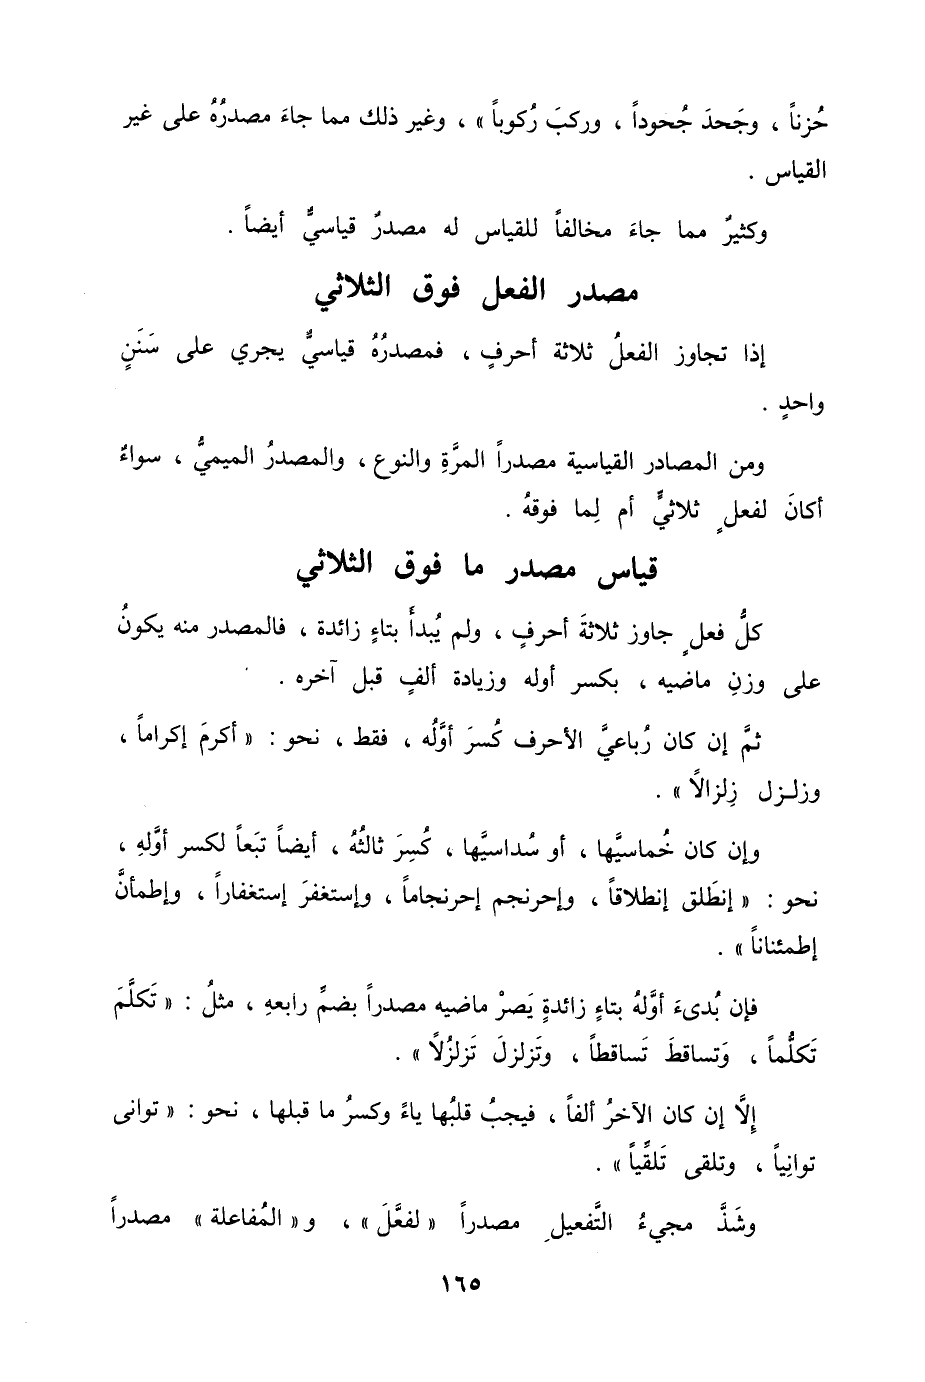 حُزناً ، وجَحدَ جُحوداً ، وركبَ رُكوباً » ، وغير ذلك مما جاءَ مصدرُهُ على غير
القياس .
وكثيرٌ مما جاءَ مخالفاً للقياس له مصدرٌ قياسيٌّ أيضاً .
مصدر الفعل فوق الثلاثي
إذا تجاوز الفعلُ ثلاثة أحرفٍ ، فمصدرُهُ قياسيٌّ يجري على سَنَنٍ
واحدٍ .
ومن المصادر القياسية مصدراً المرَّةِ والنوع ، والمصدرُ الميميُّ ، سواءٌ
أكانَ لفعلٍ ثلاثيٍّ أم لِما فوقهُ .
قياس مصدر ما فوق الثلاثي
كلُّ فعلٍ جاوز ثلاثةَ أحرفٍ ، ولم يُبدأْ بتاءٍ زائدة ، فالمصدر منه يكونُ
على وزنِ ماضيه ، بكسر أوله وزيادة ألفٍ قبل آخره .
ثمَّ إن كان رُباعيَّ الأحرف كُسرَ أوَّلُه ، فقط ، نحو : « أكرمَ إكراماً ،
وزلـزل زِلزالاً » .
وإن كان خُماسيَّها ، أو سُداسيَّها ، كُسِرَ ثالثُهُ ، أيضاً تبَعاً لكسر أوَّلهِ ،
نحو : « إنطَلق إنطلاقاً ، وإحرنجم إحرنجاماً ، وإستغفرَ إستغفاراً ، وإطمأنَّ
إطمئناناً » .
فإن بُدىءَ أوَّلهُ بتاءٍ زائدةٍ يَصرْ ماضيه مصدراً بضمِّ رابعهِ ، مثلُ : « تَكلَّمَ
تَكلُّماً ، وَتساقطَ تَساقطاً ، وتَزلزلَ تَزلزُلاً » .
إلَّا إن كان الآخرُ ألفاً ، فيجبُ قلبُها ياءً وكسرُ ما قبلها ، نحو : « توانى
توانِياً ، وتلقى تَلقِّياً » .
وشَذَّ مجيءُ التَّفعيلِ مصدراً « لفعَّلَ » ، و « المُفاعلة » مصدراً
١٦٥